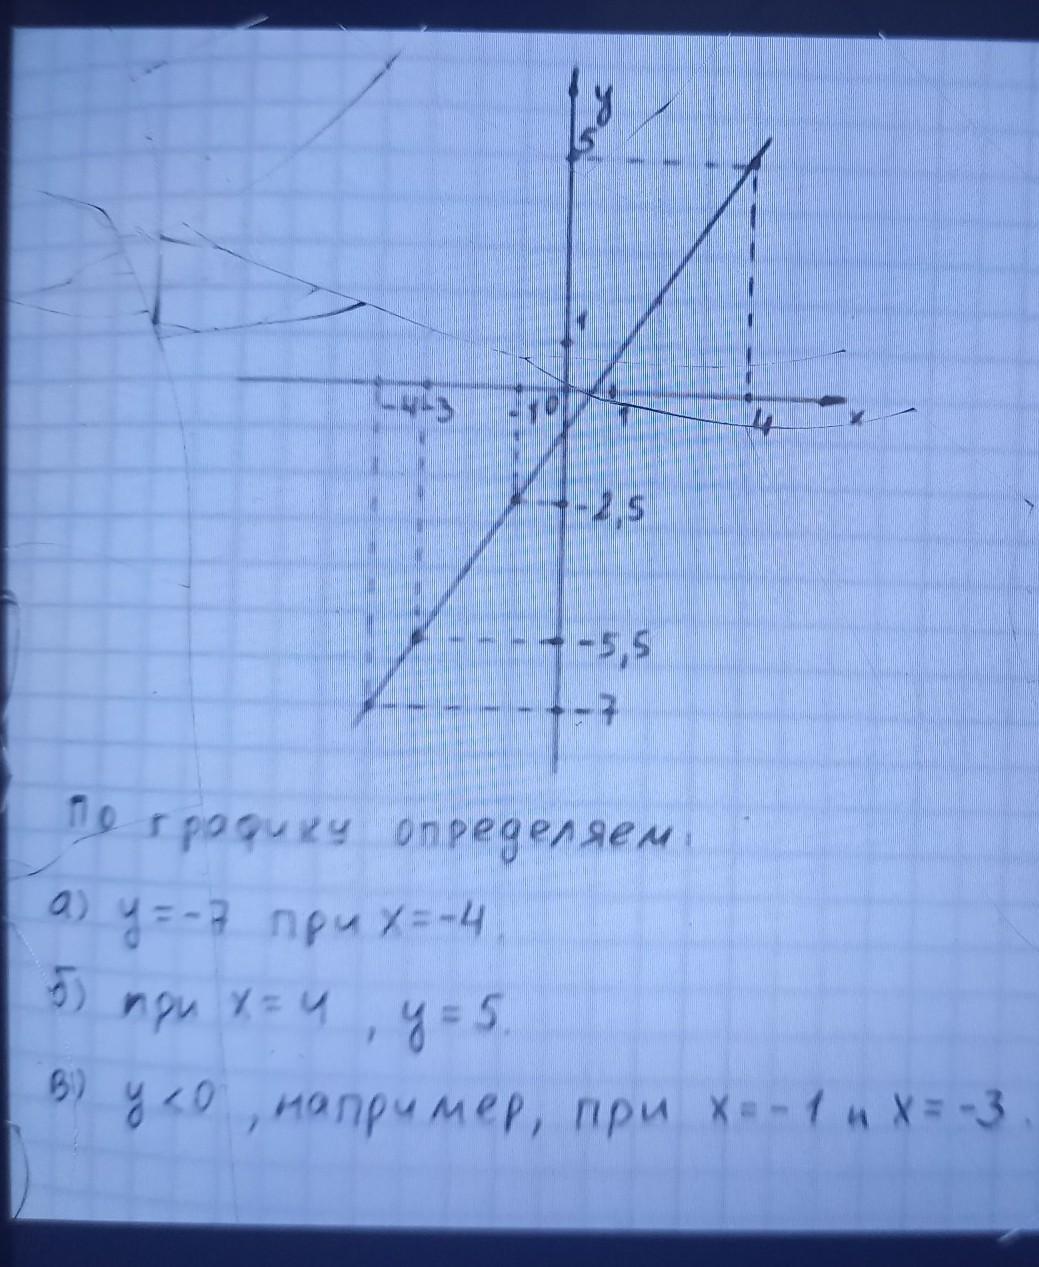 y
5
1
-4 -3 -1 0 1 4 x
-2,5
-5,5
-7
По графику определяем:
а) y = -7 при x = -4.
б) при x = 4 , y = 5.
в) y < 0 , например, при x = -1 и x = -3.